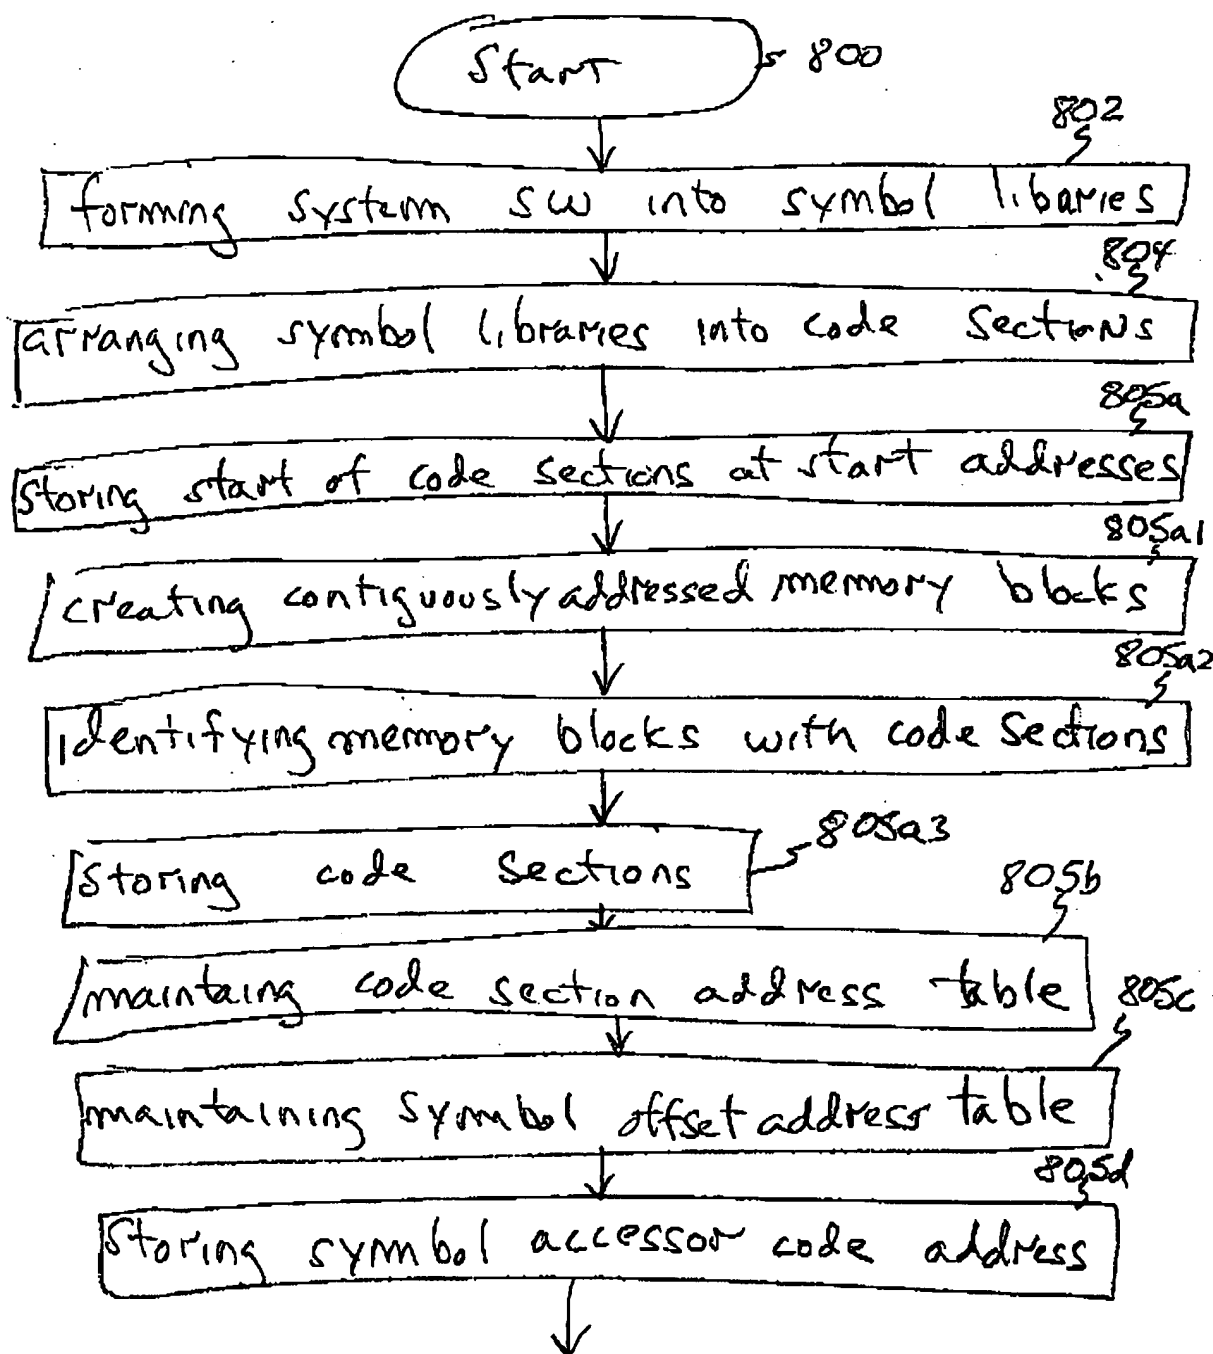 Start
800
802
forming system SW into symbol libaries
804
arranging symbol libraries into code sections
805a
storing start of code sections at start addresses
805a1
creating contiguously addressed memory blocks
805a2
identifying memory blocks with code sections
805a3
storing code sections
805b
maintaing code section address table
805c
maintaining symbol offset address table
805d
storing symbol accessor code address